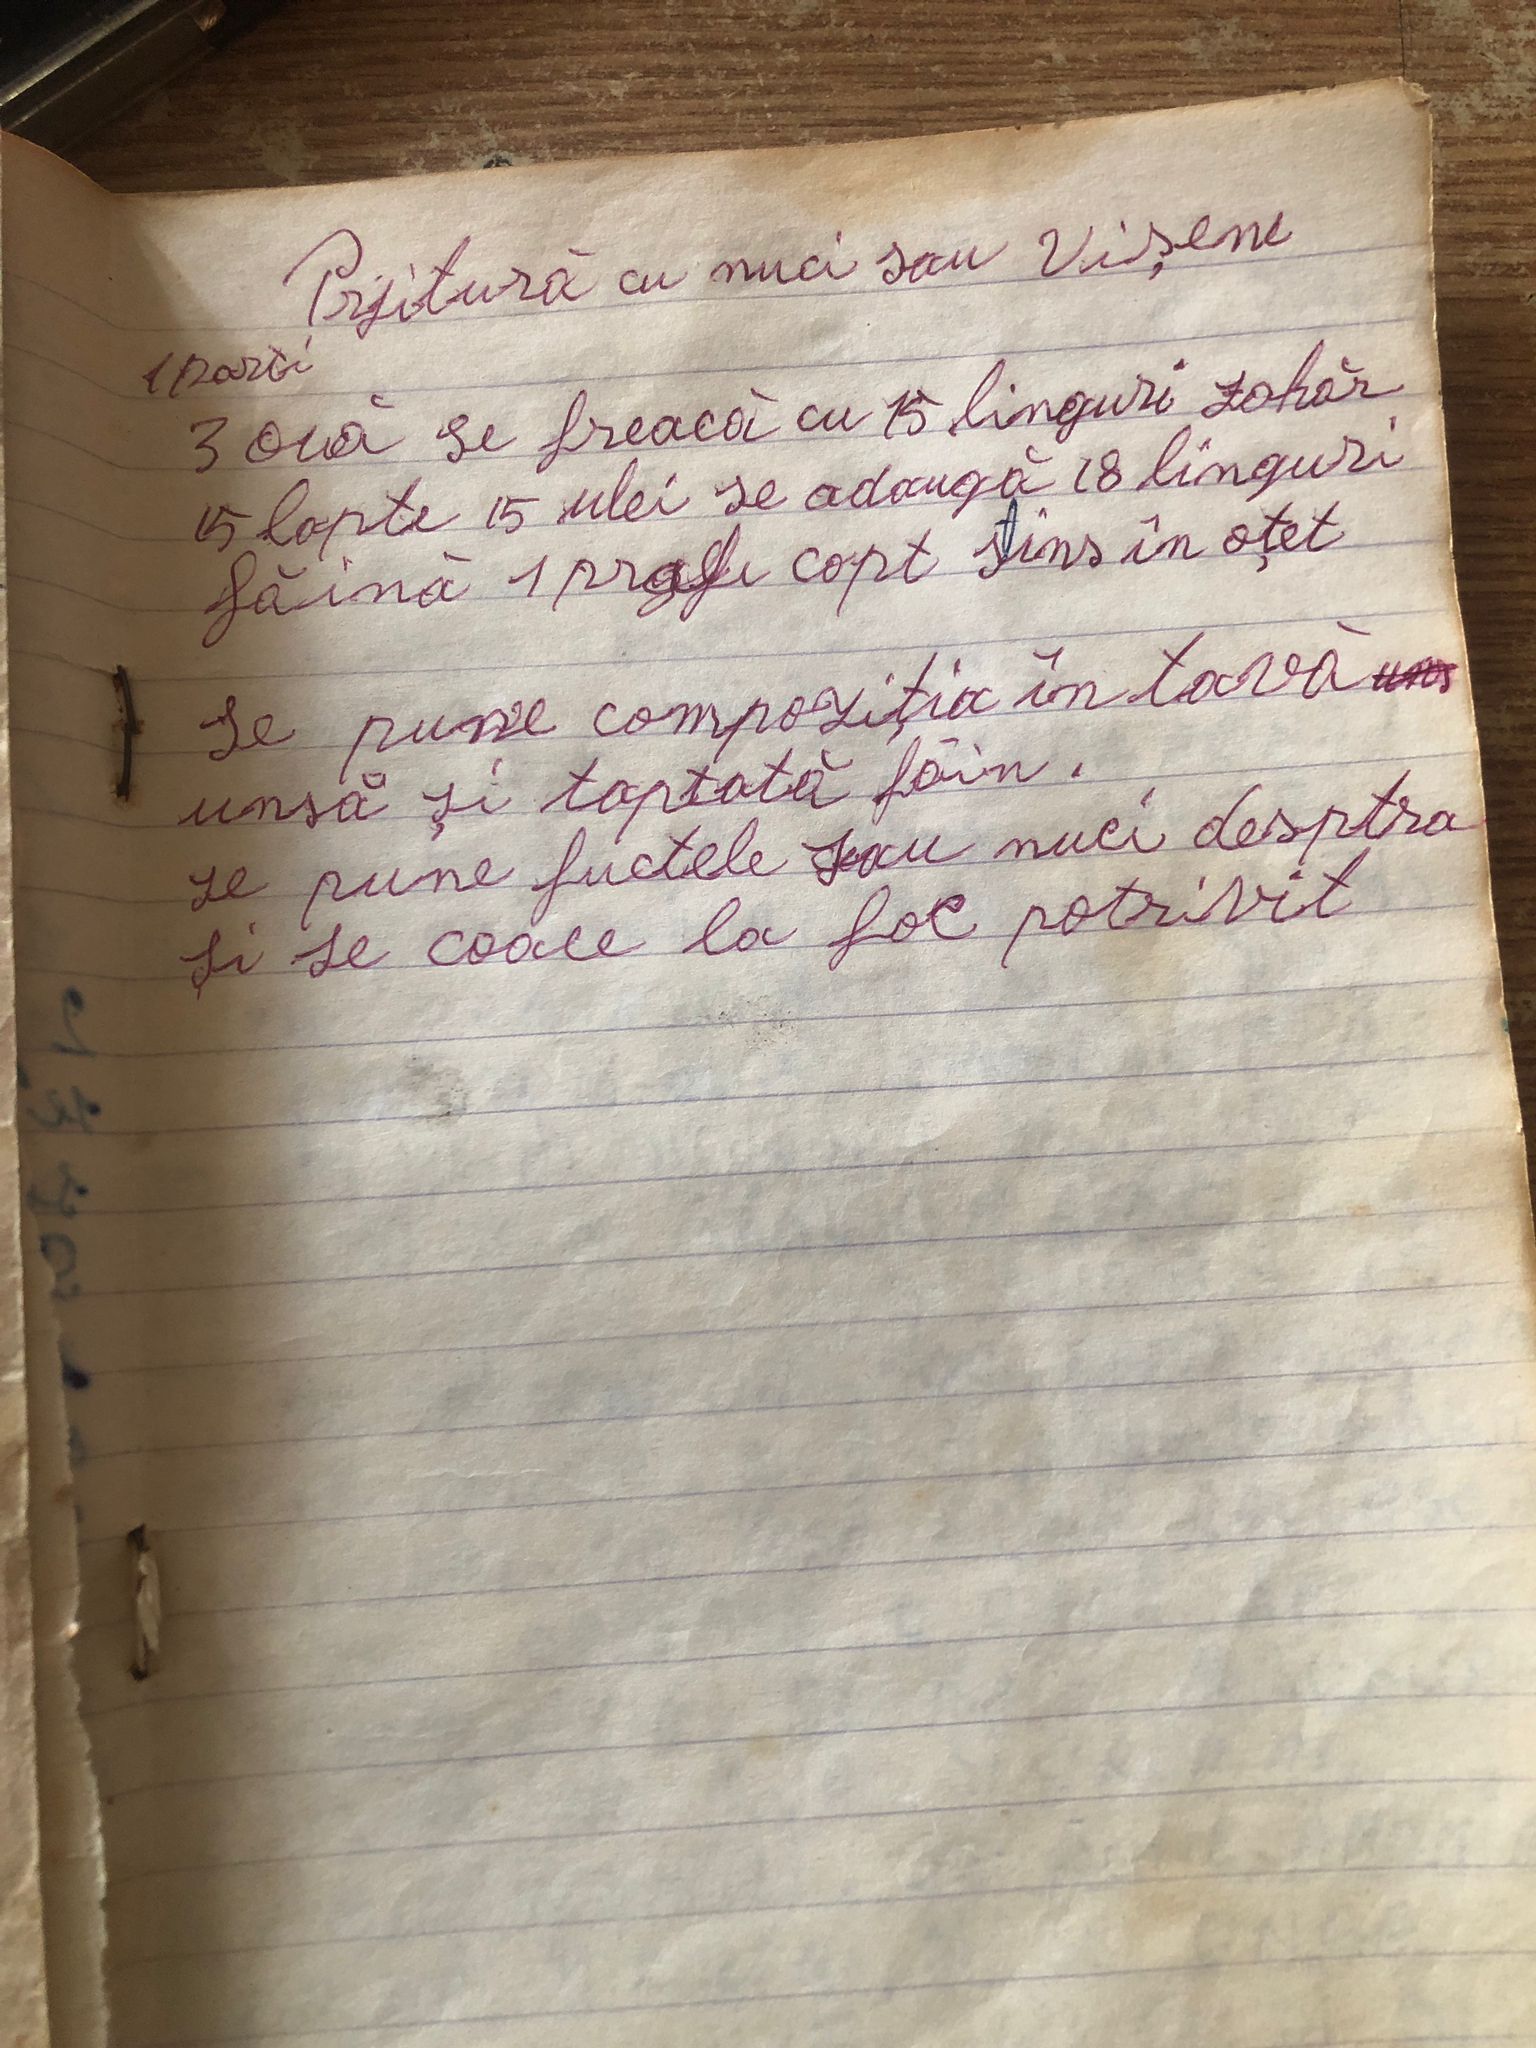 Prjitură cu nuci sau Vișene
1 parti
3 ouă se freacă cu 15 linguri zahăr
15 lapte 15 ulei se adaugă 18 linguri
făină 1 praf copt stins în oțet
se pune compoziția în tavă
unsă și taptată făin.
se pune fuctele sau nuci desptra
și se coace la foc potrivit